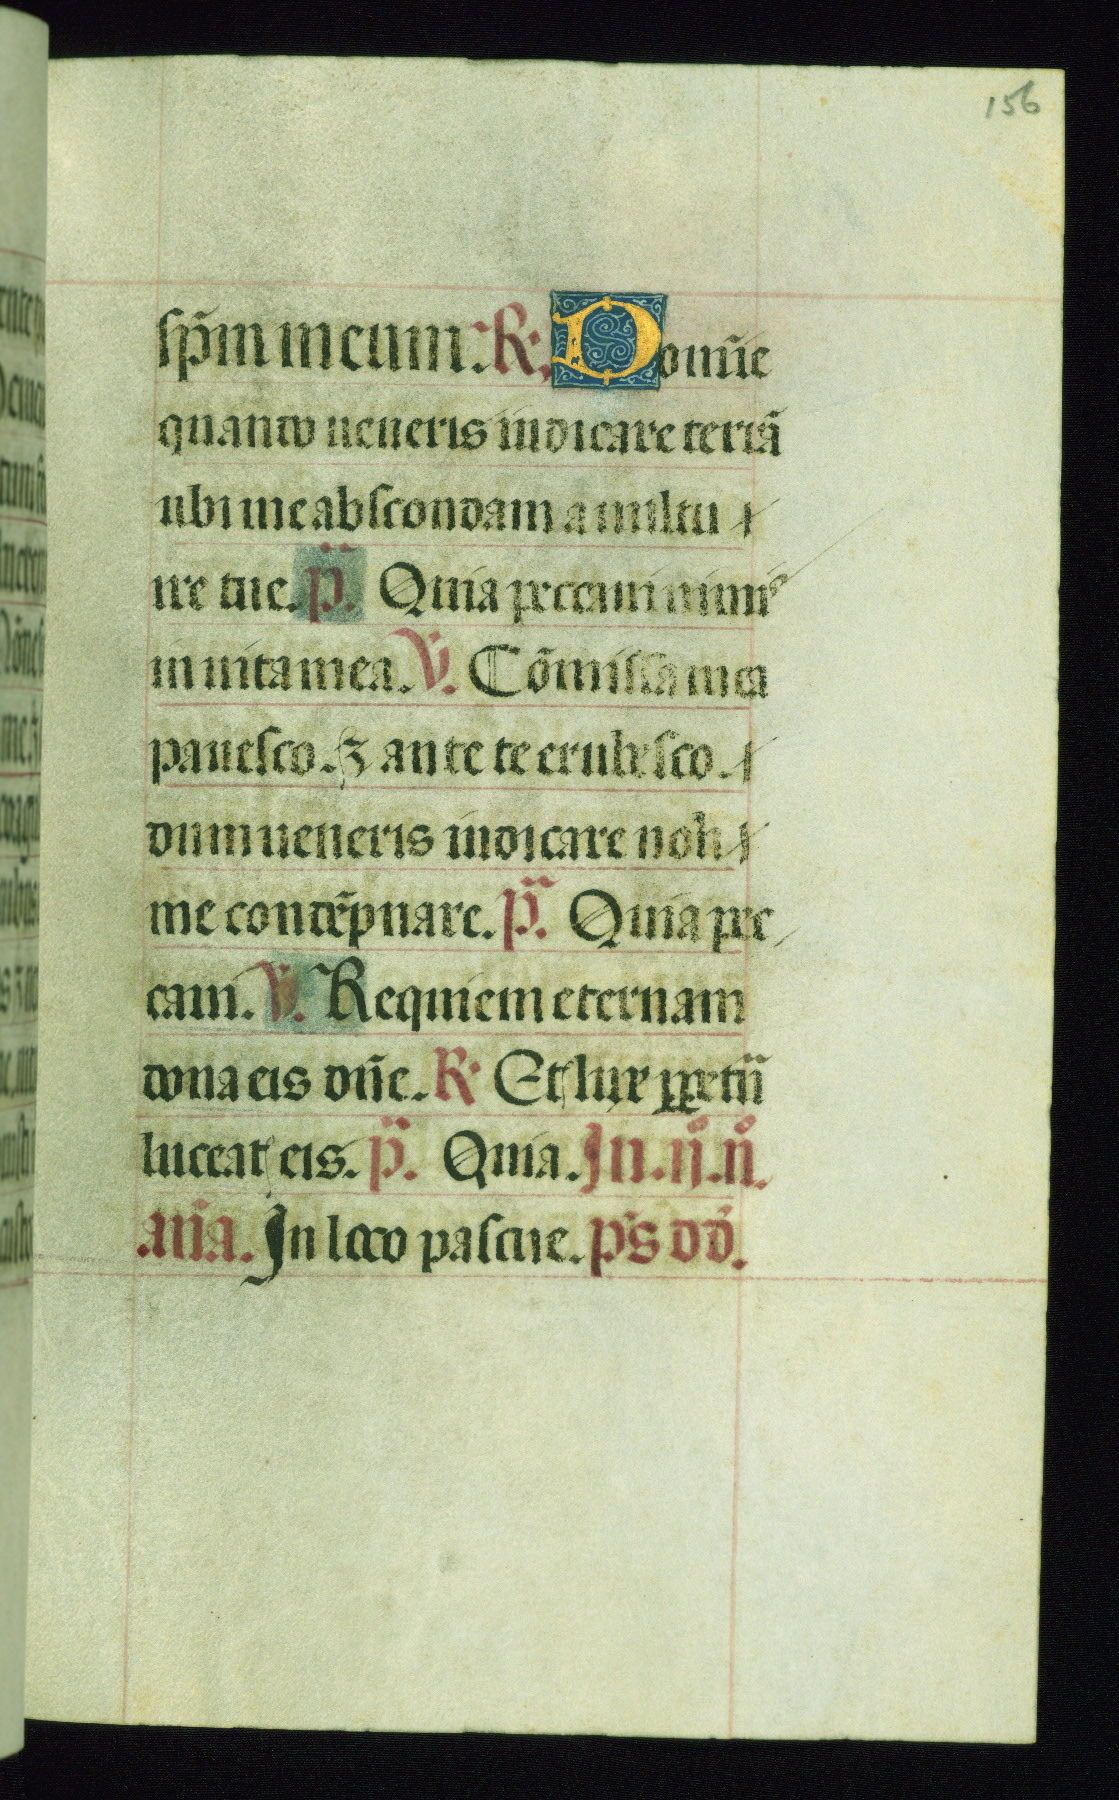 156
sp̃m meum. R. Domĩe
quando ueneris iudicare terrã
ubi me abscondam a uultu
ire tue. p̃. Quia peccaui nimĩs
in uita mea. V. Cõmissa mea
pauesco. ⁊ ante te erubesco.
dum ueneris iudicare noli
me contẽpnare. p̃. Quia pec
caui. V. Requiem eternam
dona eis dñe. R. Et lux ꝑpetũ
luceat eis. p̃. Quia. In. ijº. nº.
añã. In loco pascue. ps̃ dd̃.